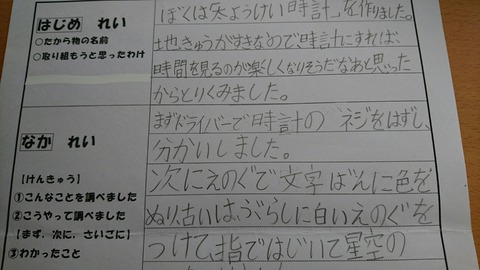 はじめ れい
○たから物の名前
○取り組もうと思ったわけ
ぼくは「太ようけい時計」を作りました。
地きゅうがすきなので、時計にすれば、
時間を見るのが楽しくなりそうだなあと思った
からとりくみました。
なか れい
【けんきゅう】
①こんなことを調べました
②こうやって調べました
【まず、次に、さいごに】
③わかったこと
まずドライバーで時計の ネジをはずし、
分かいしました。
次にえのぐで文字ばんに色を
ぬり、古いはぶらしに白いえのぐを
つけて、指ではじいて星空の